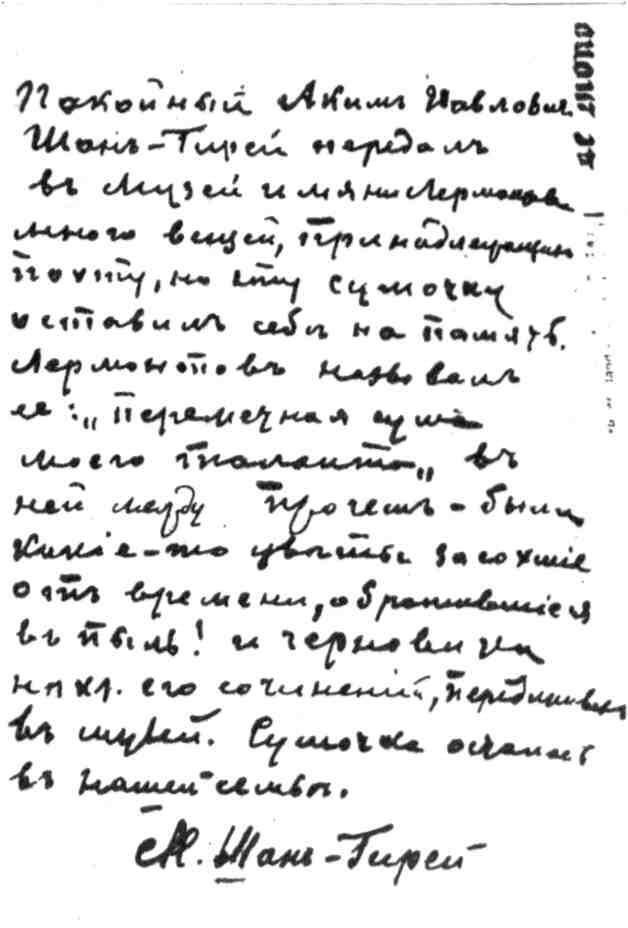 Покойный Акимъ Павлович
Шанъ-Гирей передалъ
въ Музей имяни Лермонтова
много вещей, принадлежащих
поэту, но эту сумочку
оставилъ себѣ на память.
Лермонтовъ называлъ
ее: „перемечная сума
моего таланта„ въ
ней между прочемъ - были
какіе-то цвѣты засохшіе
отъ времени, обратившіеся
въ пыль! и черновики
нѣк. его сочиненій,
въ музей. Сумочка осталась
въ нашей семьѣ.
М. Шанъ-Гирей